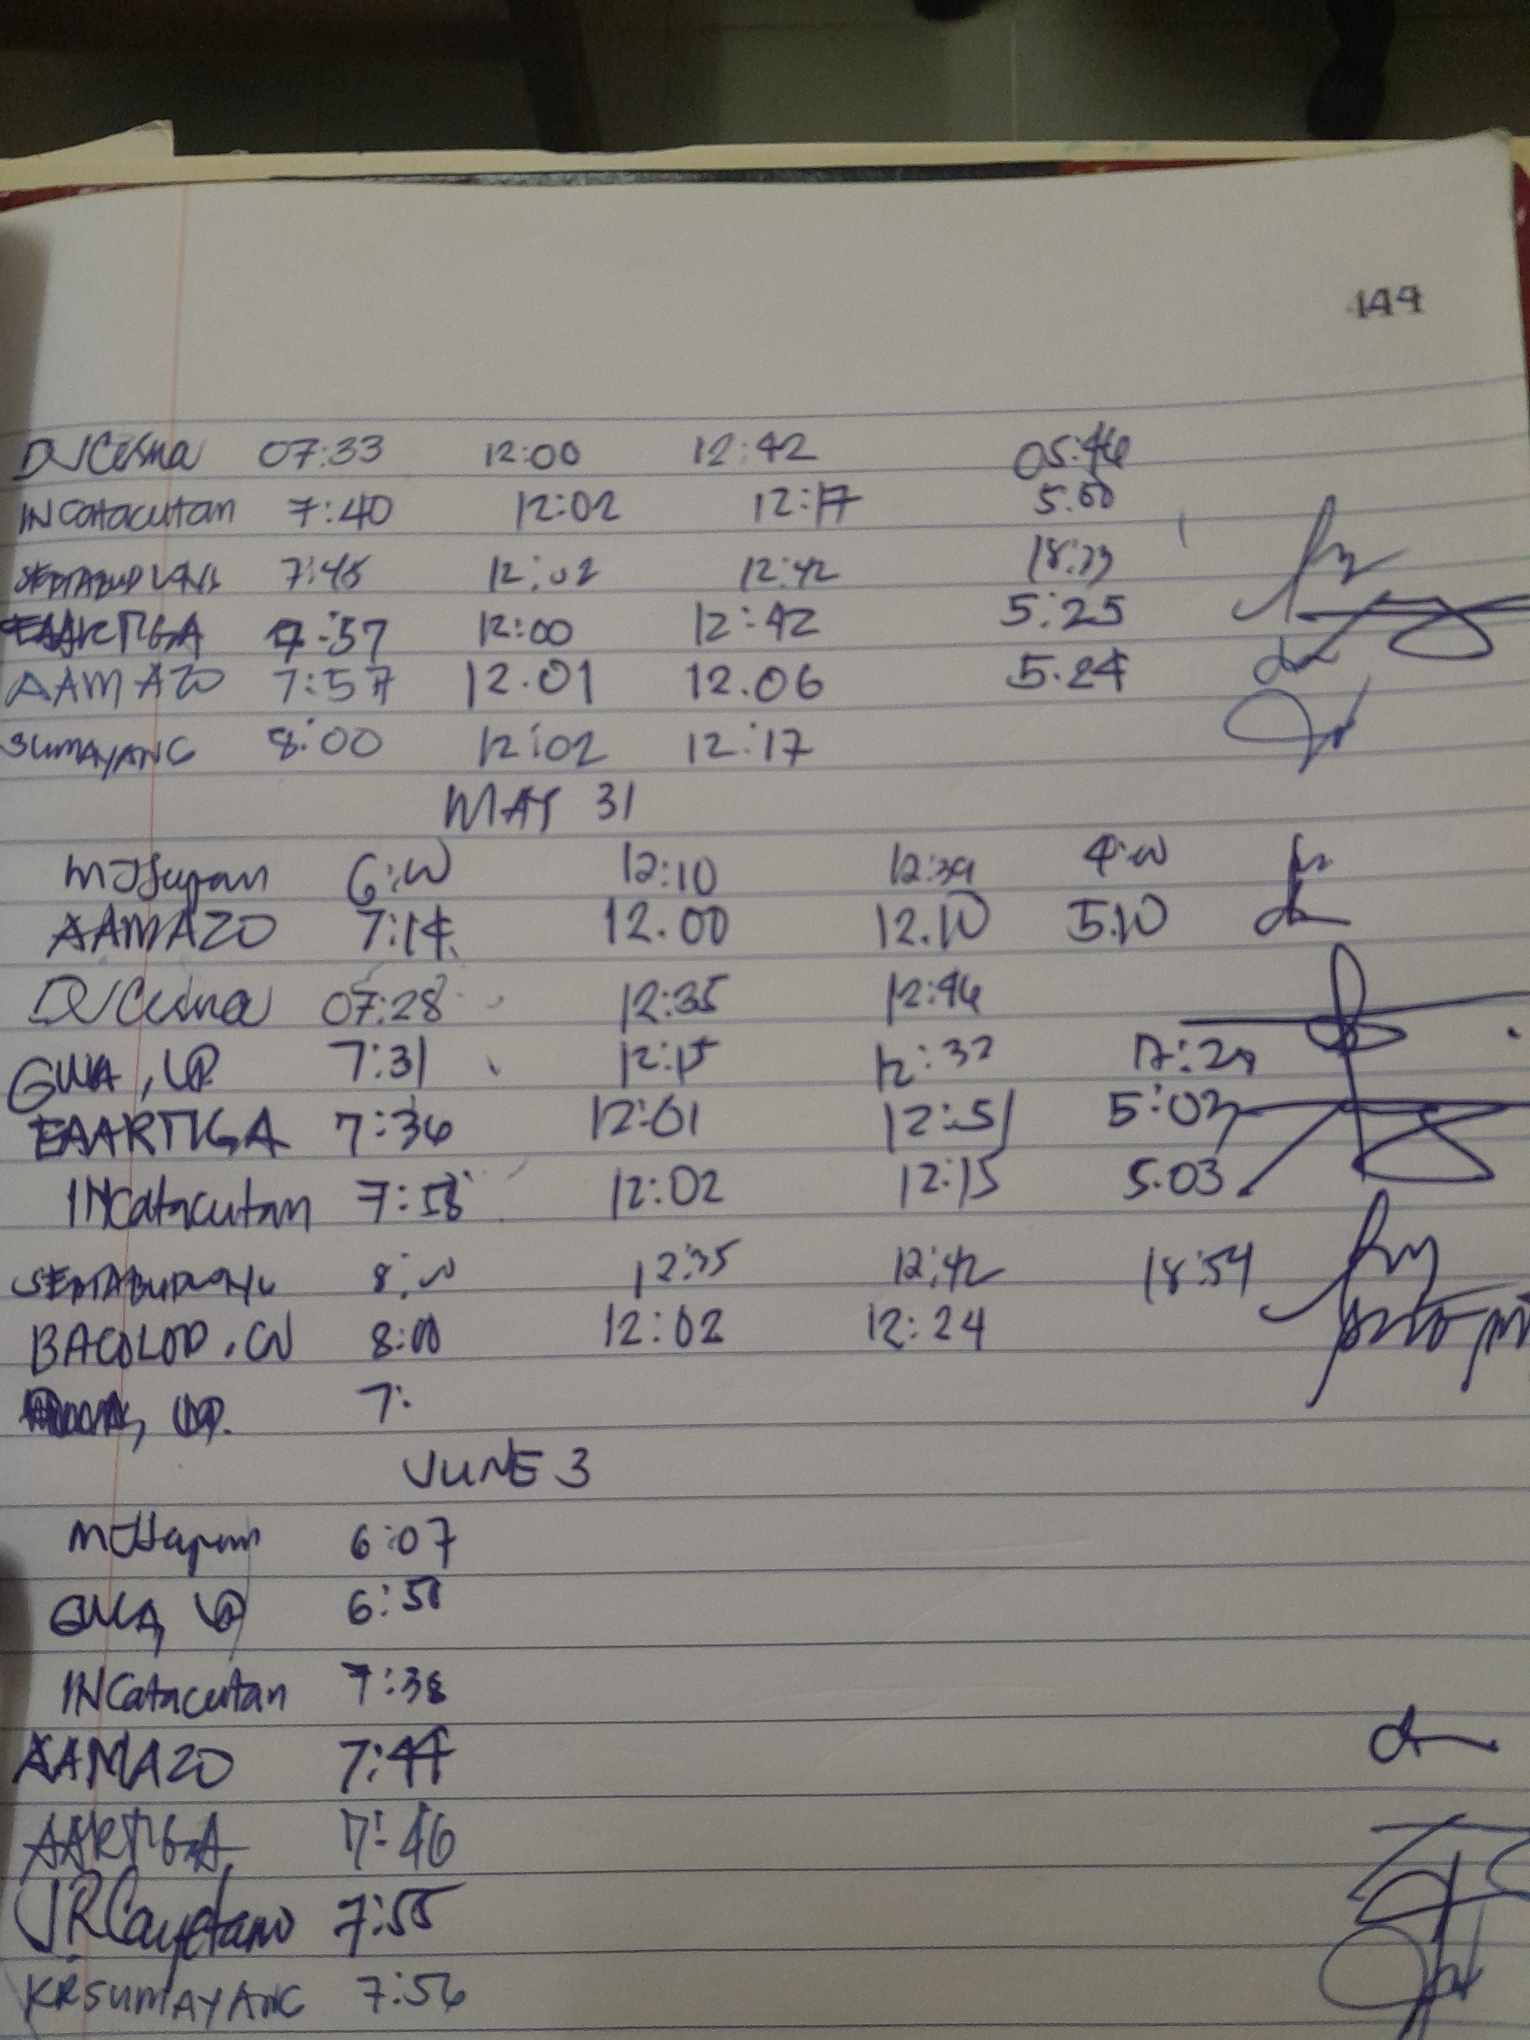 149
DJCesma 07:33 12:00 12:42 05:46
INCatacutan 7:40 12:02 12:17 5.00
7:45 12:02 12:42 18:33
EAARTIGA 7:57 12:00 12:42 5:25
AAMAZO 7:57 12.01 12.06 5.24
SUMAYANG 8:00 12:02 12:17
MAY 31
6:00 12:10 12:39 4:00
AAMAZO 7:14 12.00 12.10 5.10
DJCesma 07:28 12:35 12:46
7:31 12:15 12:32 17:29
EAARTIGA 7:36 12:01 12:51 5:03
INCatacutan 7:58 12:02 12:15 5.03
8:00 12:35 12:42 18:54
BACOLOD, CV 8:00 12:02 12:24
7:
JUNE 3
6:07
6:50
INCatacutan 7:38
AAMAZO 7:44
AARTIGA 7:46
JRCayetano 7:55
KRSUMAYANG 7:56